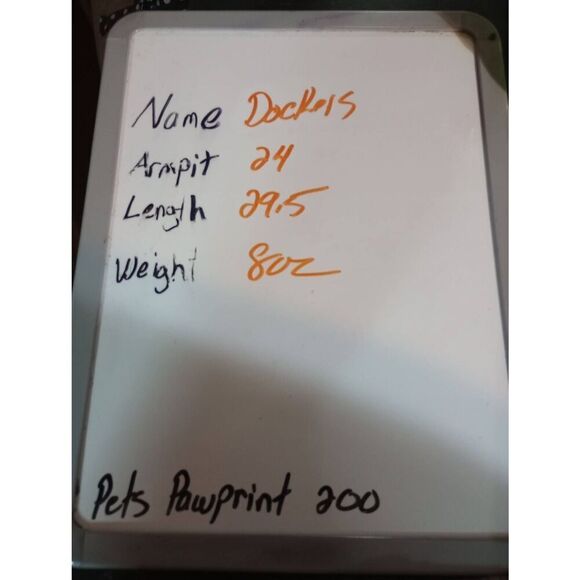 Name Dockers
Armpit 24
Length 29.5
Weight 8oz
Pets Pawprint 200